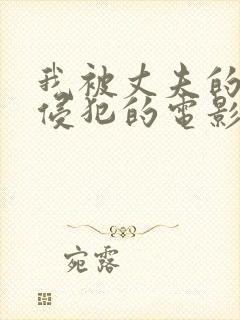 我被丈夫的
侵犯的电影
宛露